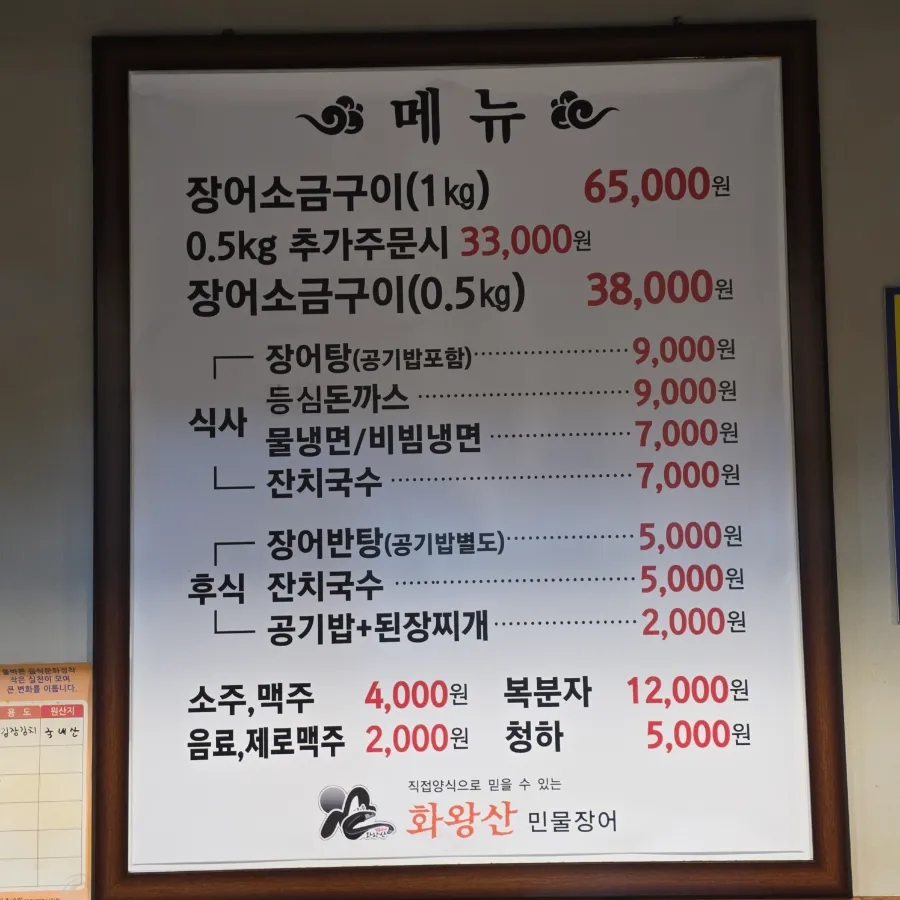 메뉴
장어소금구이(1kg) 65,000원
0.5kg 추가주문시 33,000원
장어소금구이(0.5kg) 38,000원
식사
장어탕(공기밥포함) 9,000원
등심돈까스 9,000원
물냉면/비빔냉면 7,000원
잔치국수 7,000원
후식
장어반탕(공기밥별도) 5,000원
잔치국수 5,000원
공기밥+된장찌개 2,000원
소주,맥주 4,000원 복분자 12,000원
음료,제로맥주 2,000원 청하 5,000원
직접양식으로 믿을 수 있는
화왕산 민물장어
작은 실천이 모여
큰 변화를 이룹니다.
용도 원산지
김장김치 국내산